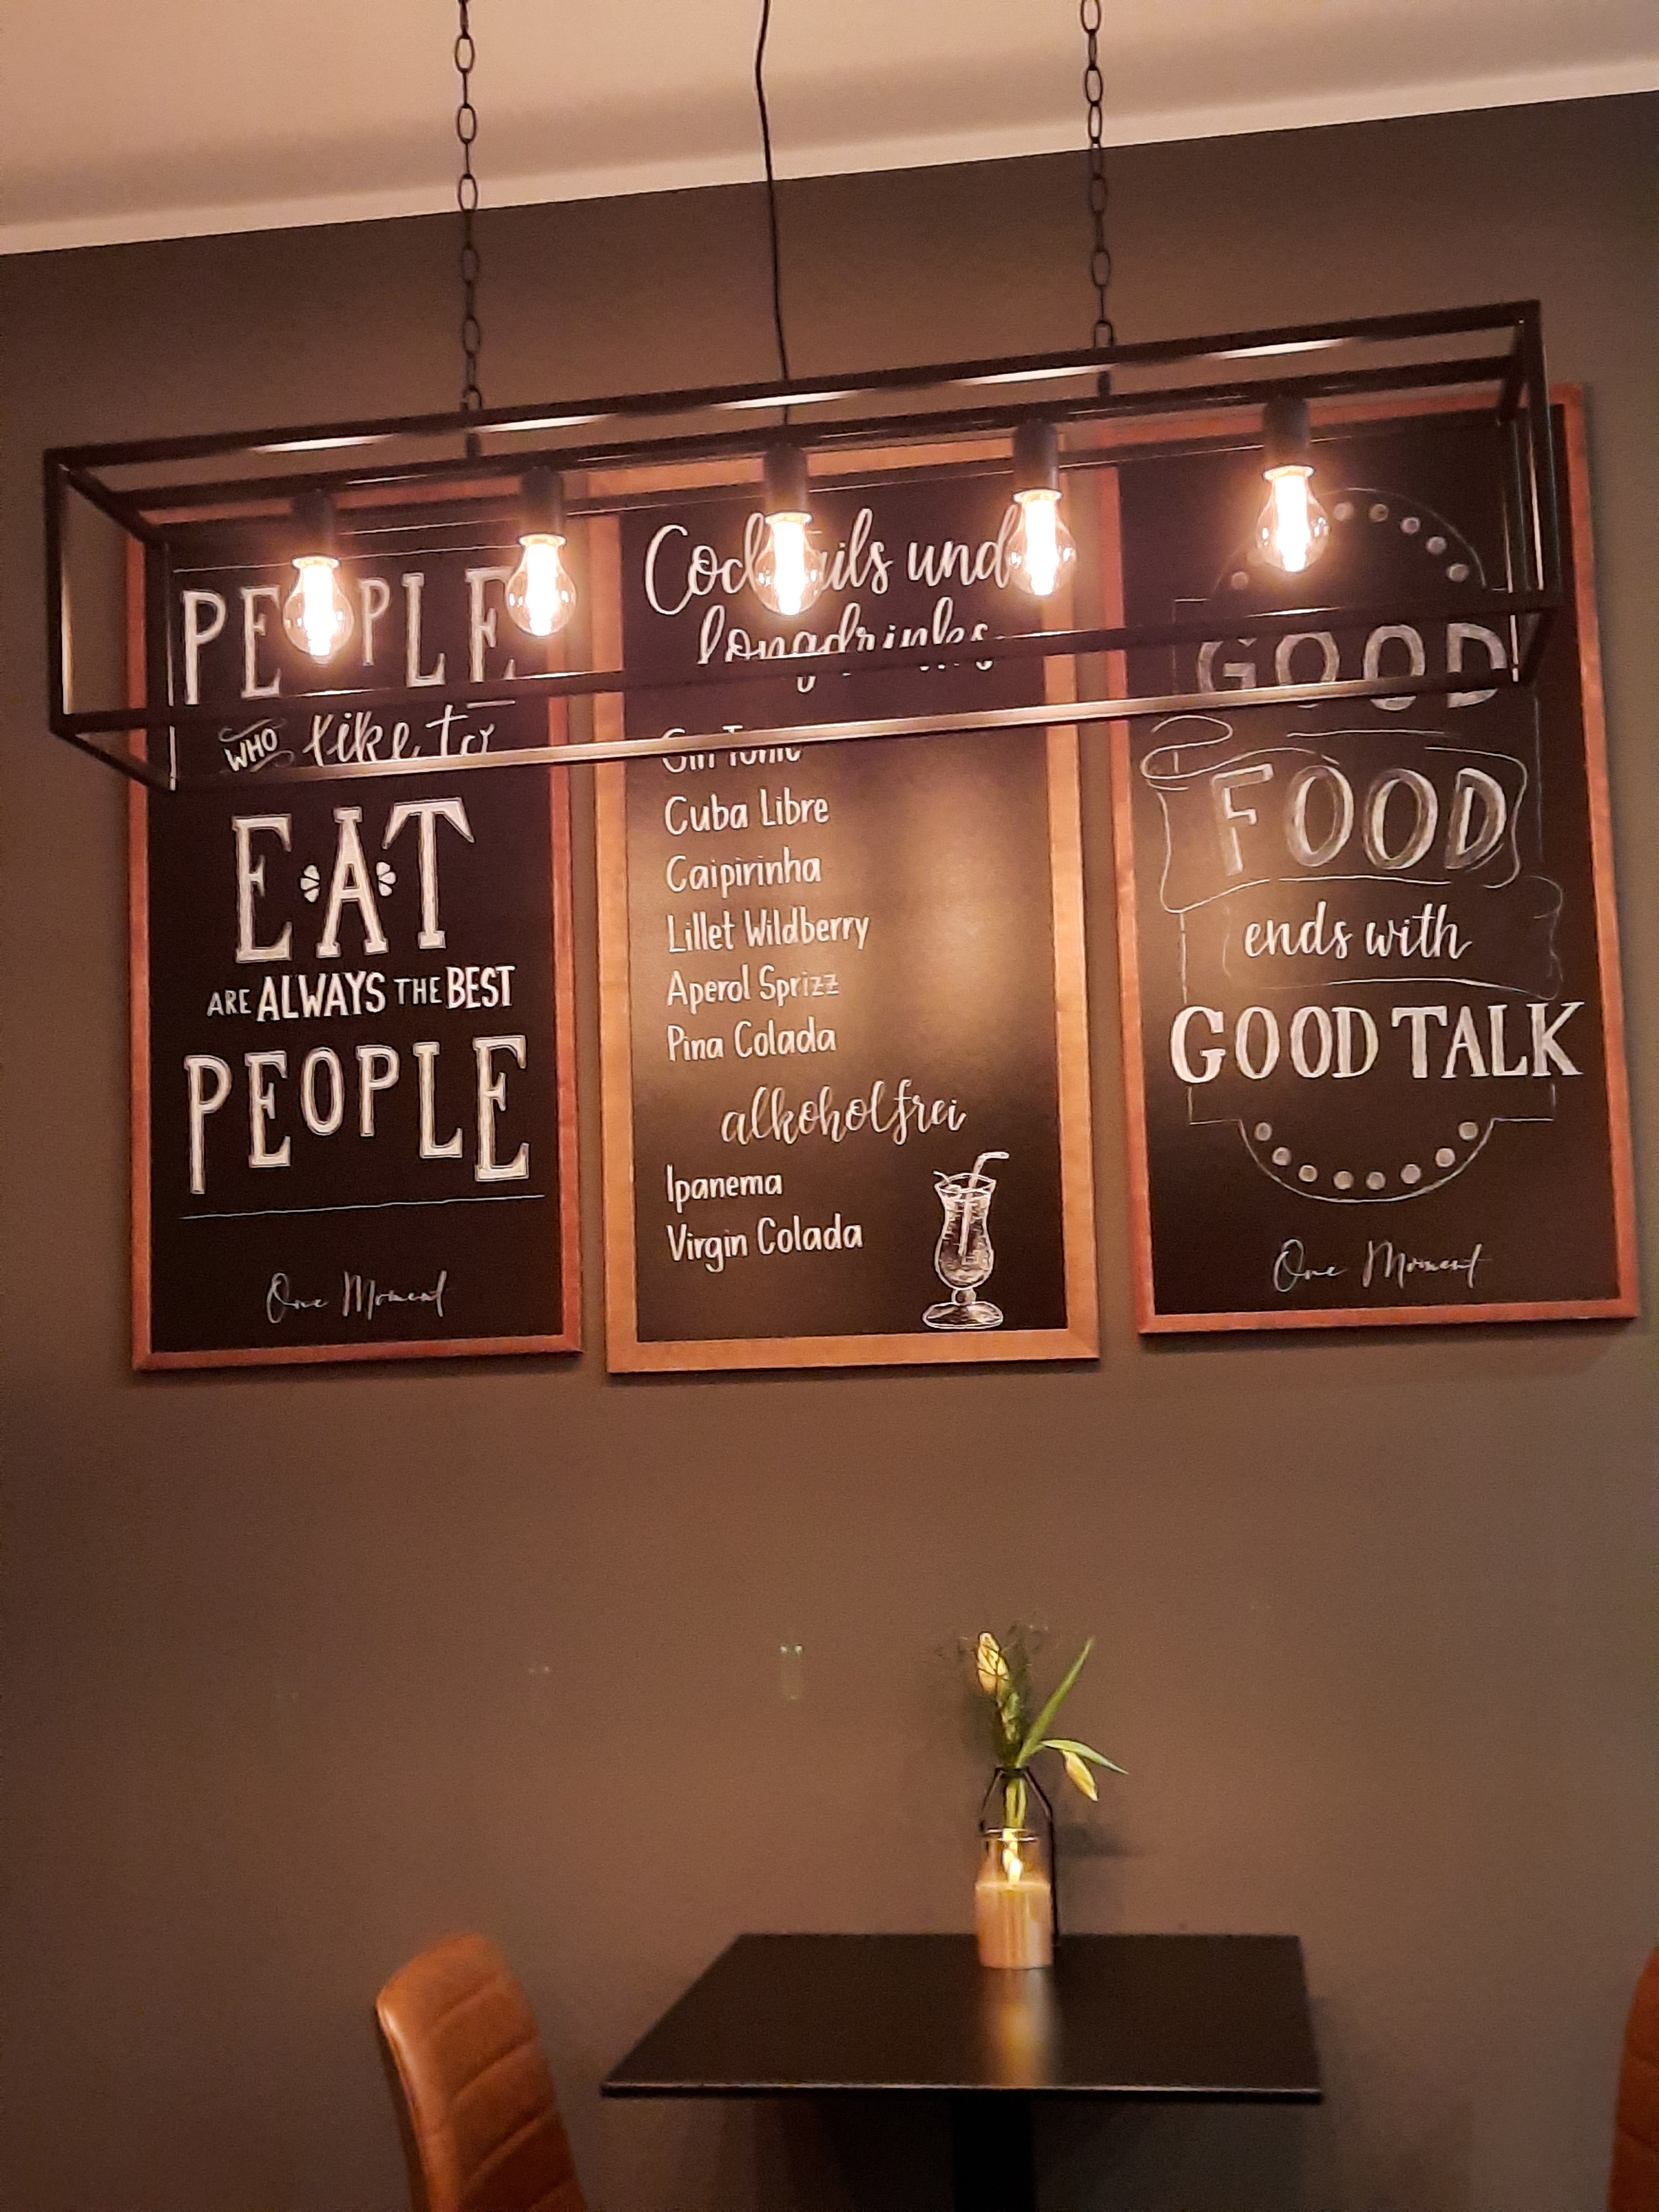 PEOPLE
WHO like to
EAT
ARE ALWAYS THE BEST
PEOPLE
One Moment
Cocktails und
longdrinks
Gin Tonic
Cuba Libre
Caipirinha
Lillet Wildberry
Aperol Sprizz
Pina Colada
alkoholfrei
Ipanema
Virgin Colada
GOOD
FOOD
ends with
GOOD TALK
One Moment